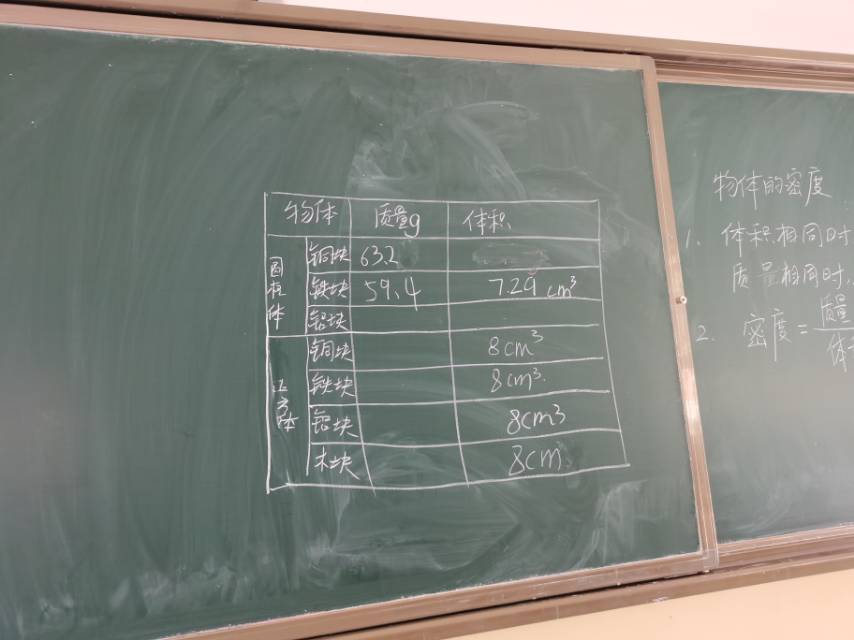 物体 质量g 体积
圆柱体
铜块 63.2
铁块 59.4 7.29 cm³
铝块
正方体
铜块 8cm³
铁块 8cm³.
铝块 8cm³
木块 8cm
物体的密度
1. 体积相同时
质量相同时,
2. 密度=质量
体